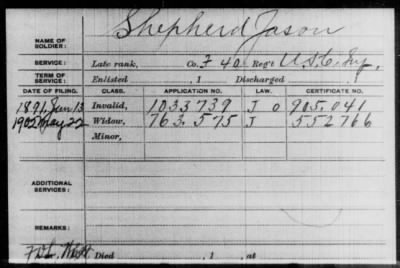 Shepherd Jason
NAME OF SOLDIER:
SERVICE: Late rank, Co. F 40 Reg't U.S.C. Inf.
TERM OF SERVICE: Enlisted , 1 Discharged , 1
DATE OF FILING. CLASS. APPLICATION NO. LAW. CERTIFICATE NO.
1891 Jun 13 Invalid, 1033739 J O 905.041
1902 May 22 Widow, 763.575 J 552766
Minor,
ADDITIONAL SERVICES:
REMARKS:
Died , 1 , at